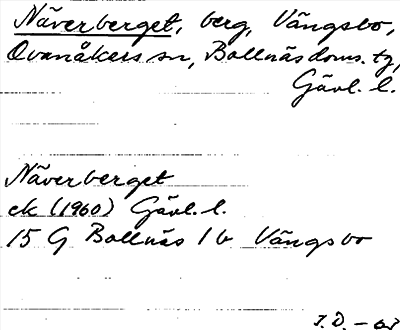 Näverberget, berg, Vängsbo,
Ovanåkers sn, Bollnäs doms. tg,
Gävl. l.
Näverberget
ek (1960) Gävl. l.
15 G Bollnäs 1 b Vängsbo
I.D. - 67